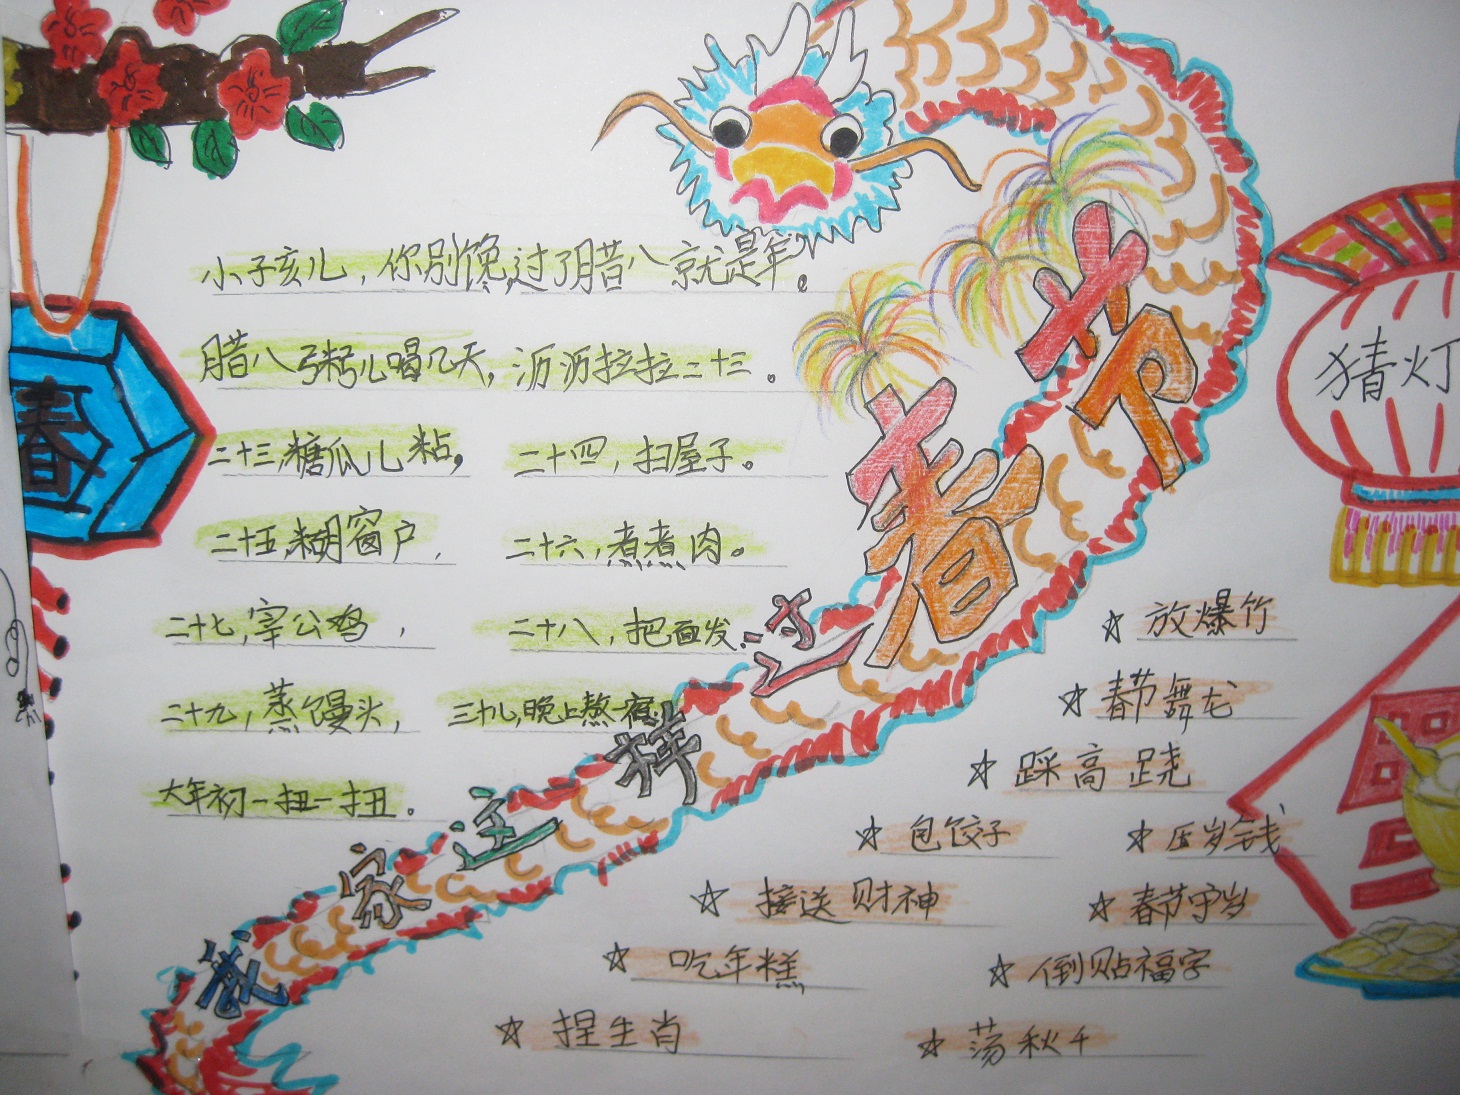 春
小孩儿，你别馋,过了腊八就是年。
腊八粥儿喝几天，沥沥拉拉二十三。
二十三,糖瓜儿粘。 二十四，扫屋子。
二十五,糊窗户， 二十六，煮煮肉。
二十七，宰公鸡， 二十八，把面发.
二十九，蒸馒头， 三十儿,晚上熬一宿
大年初一扭一扭。
我家这样过春节
猜灯
☆ 放爆竹
☆ 春节舞龙
☆ 踩高跷
☆ 包饺子 ☆ 压岁钱
☆ 接送财神 ☆ 春节守岁
☆ 吃年糕 ☆ 倒贴福字
☆ 捏生肖 ☆ 荡秋千